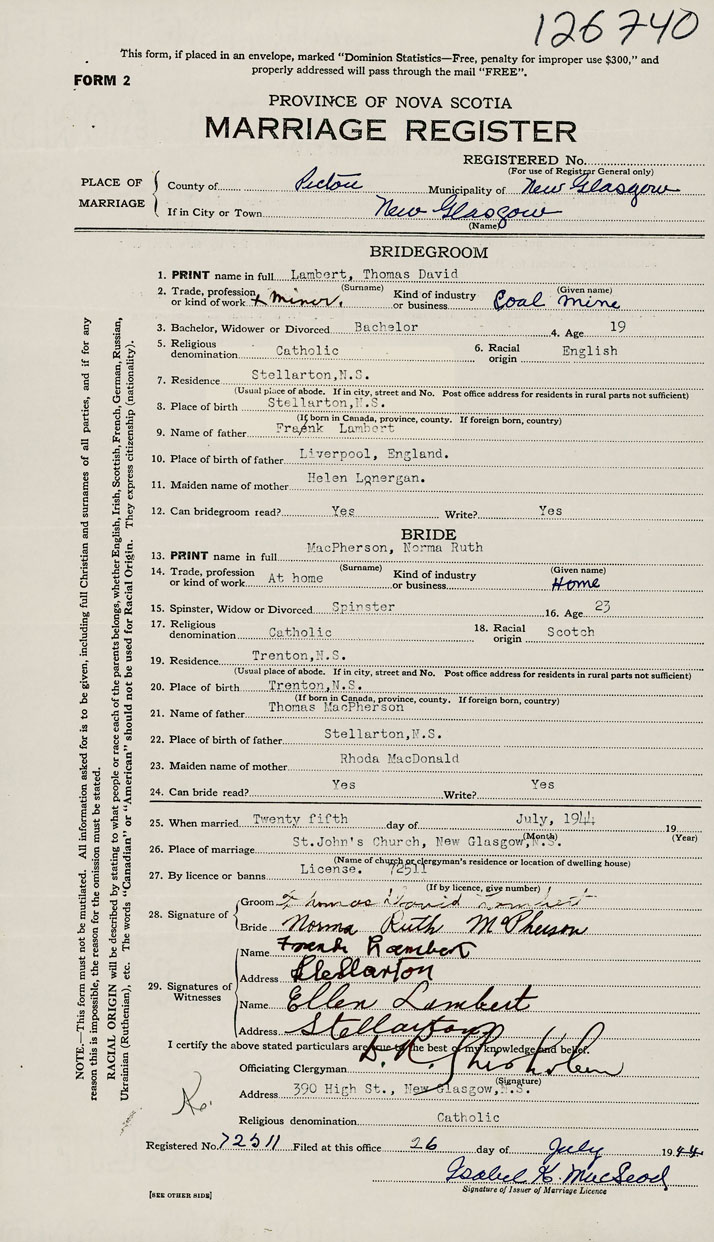 126740
This form, if placed in an envelope, marked "Dominion Statistics—Free, penalty for improper use $300," and
properly addressed will pass through the mail "FREE".
FORM 2
PROVINCE OF NOVA SCOTIA
MARRIAGE REGISTER
REGISTERED No.
(For use of Registrar General only)
PLACE OF MARRIAGE
County of Pictou Municipality of New Glasgow
If in City or Town New Glasgow
(Name)
BRIDEGROOM
1. PRINT name in full Lambert, Thomas David
(Surname) (Given name)
2. Trade, profession or kind of work Miner. Kind of industry or business Coal Mine
3. Bachelor, Widower or Divorced Bachelor 4. Age 19
5. Religious denomination Catholic 6. Racial origin English
7. Residence Stellarton,N.S.
(Usual place of abode. If in city, street and No. Post office address for residents in rural parts not sufficient)
8. Place of birth Stellarton,N.S.
(If born in Canada, province, county. If foreign born, country)
9. Name of father Frank Lambert
10. Place of birth of father Liverpool, England.
11. Maiden name of mother Helen Lonergan.
12. Can bridegroom read? Yes Write? Yes
BRIDE
13. PRINT name in full MacPherson, Norma Ruth
(Surname) (Given name)
14. Trade, profession or kind of work At home Kind of industry or business Home
15. Spinster, Widow or Divorced Spinster 16. Age 23
17. Religious denomination Catholic 18. Racial origin Scotch
19. Residence Trenton,N.S.
(Usual place of abode. If in city, street and No. Post office address for residents in rural parts not sufficient)
20. Place of birth Trenton,N.S.
(If born in Canada, province, county. If foreign born, country)
21. Name of father Thomas MacPherson
22. Place of birth of father Stellarton,N.S.
23. Maiden name of mother Rhoda MacDonald
24. Can bride read? Yes Write? Yes
25. When married Twenty fifth day of July, 1944 19
(Month) (Year)
26. Place of marriage St.John's Church, New Glasgow,N.S.
(Name of church or clergyman's residence or location of dwelling house)
27. By licence or banns License. 72511
(If by licence, give number)
28. Signature of
Groom Thomas David Lambert
Bride Norma Ruth McPherson
29. Signatures of Witnesses
Name Frank Lambert
Address Stellarton
Name Ellen Lambert
Address Stellarton
I certify the above stated particulars are true to the best of my knowledge and belief.
Officiating Clergyman D. R. Chisholm
(Signature)
Address 390 High St., New Glasgow,N.S.
Religious denomination Catholic
Registered No. 72511 Filed at this office 26 day of July 1944
Isabel K. MacLeod
Signature of Issuer of Marriage Licence
[SEE OTHER SIDE]
NOTE.—This form must not be mutilated. All information asked for is to be given, including full Christian and surnames of all parties, and if for any
reason this is impossible, the reason for the omission must be stated.
RACIAL ORIGIN will be described by stating to what people or race each of the parents belongs, whether English, Irish, Scottish, French, German, Russian,
Ukrainian (Ruthenian), etc. The words "Canadian" or "American" should not be used for Racial Origin. They express citizenship (nationality).